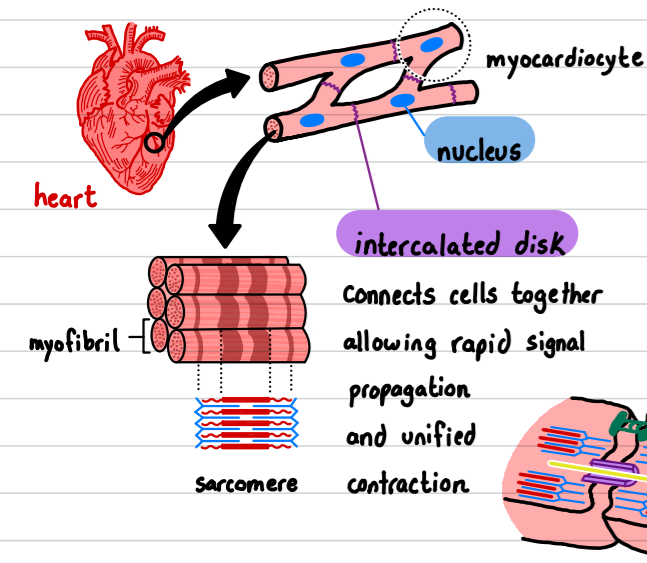 myocardiocyte
nucleus
heart
intercalated disk
Connects cells together
allowing rapid signal
propagation
and unified
contraction
myofibril
sarcomere